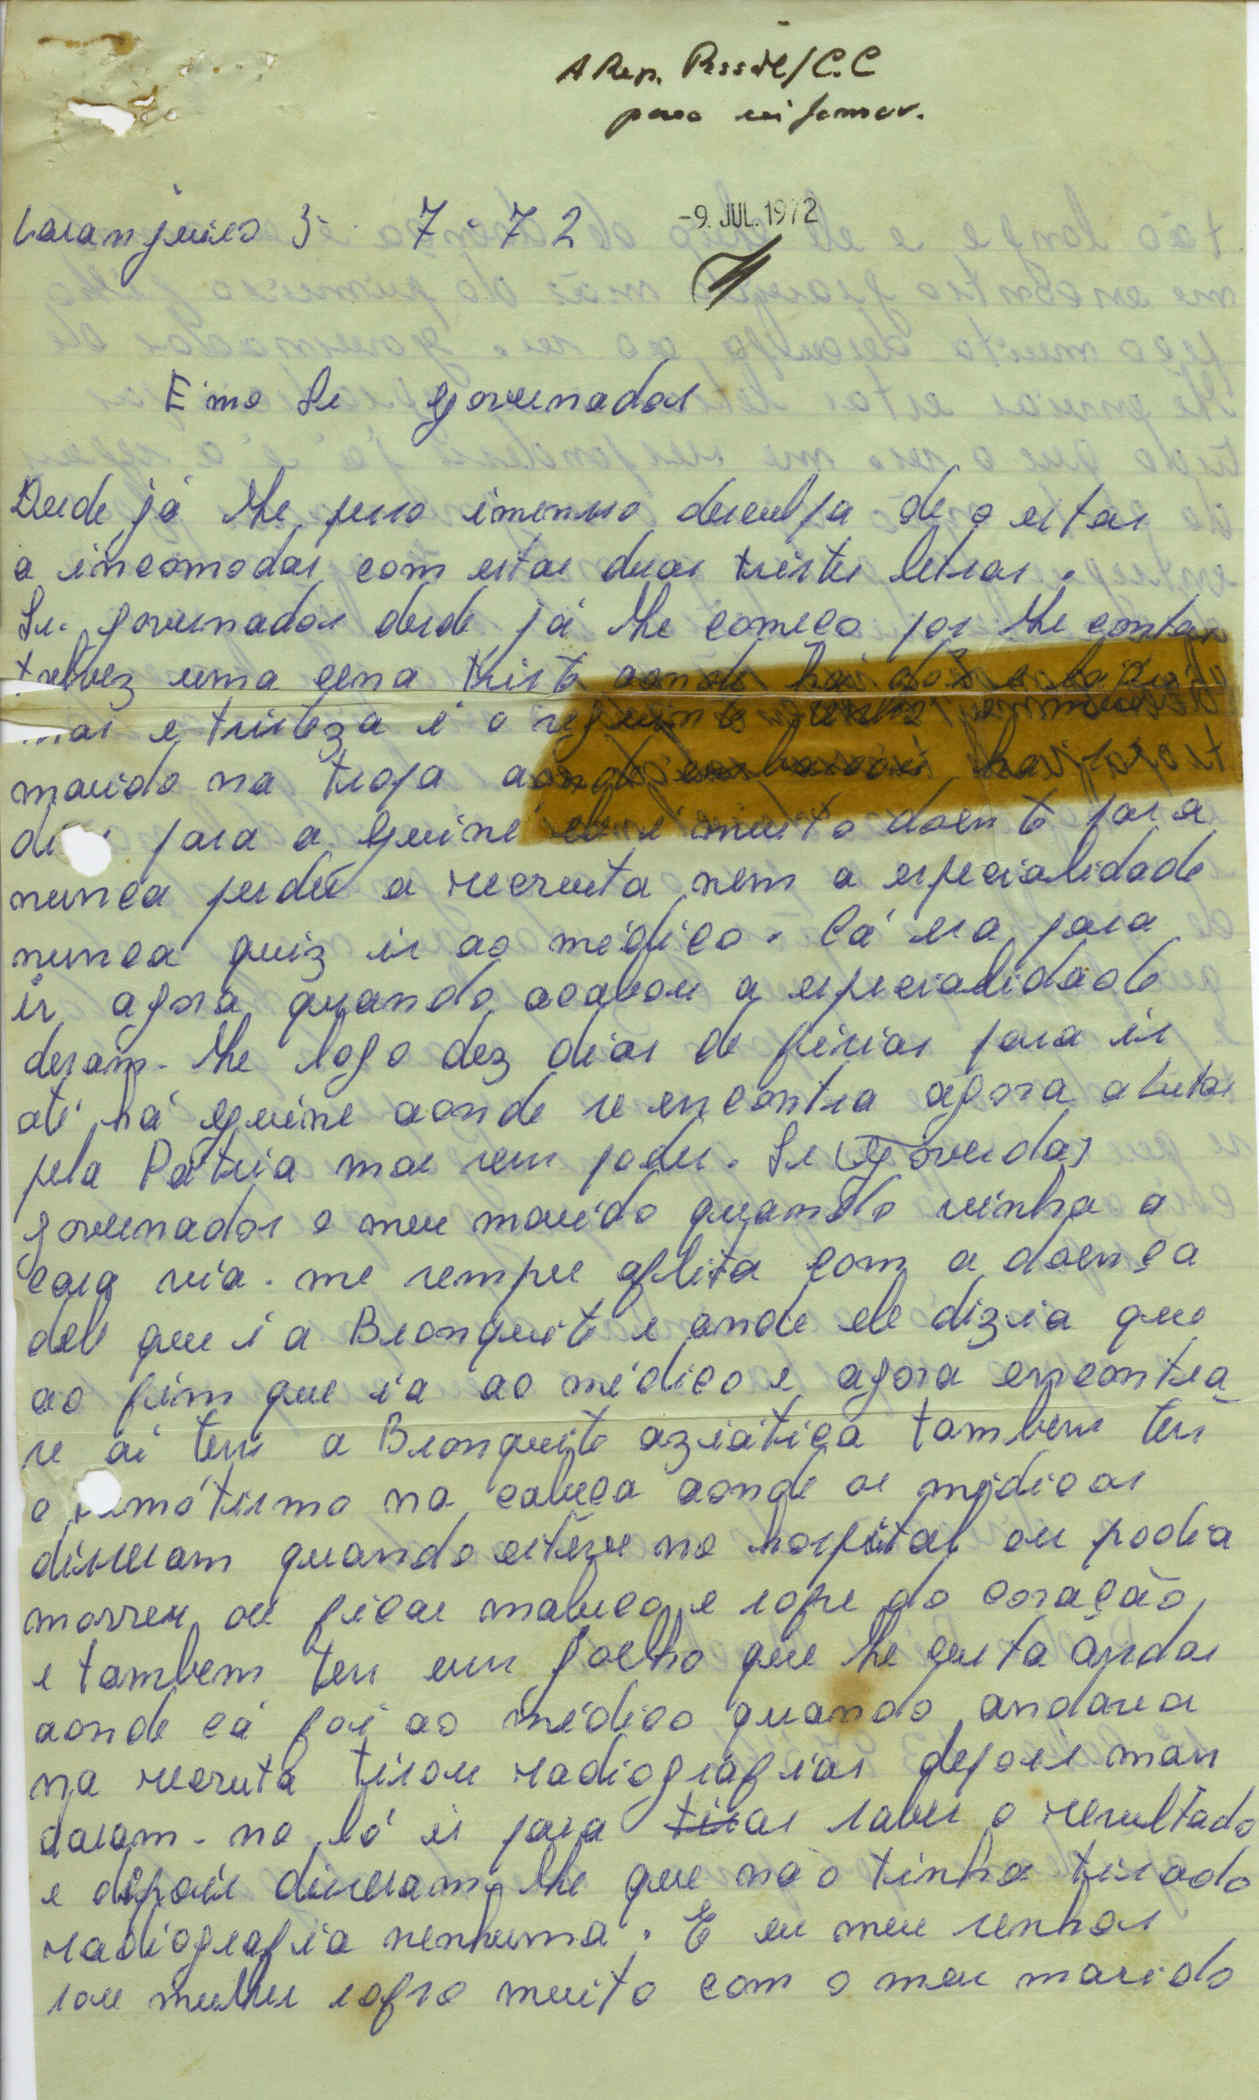 A Rep.
para informar.
Laranjeiro 3- 7-72
-9. JUL. 1972
Emo Sr governador
Desde já lhe peso imenso desculpa de o estar
a incomodar com estas duas tristes letras.
Sr. governador desde já lhe começo por lhe contar
talvez uma cena triste aonde hai dor e lágri
mas e tristeza é o seguinte tenho o meu
marido na tropa aonde
para a Guiné ele é muito doente para
nunca perder a recruta nem a especialidade
nunca quiz ir ao médico. Cá era para
ir agora quando acabou a especialidade
deram-lhe logo dez dias de férias para ir
até há Guine aonde se encontra agora a lutar
pela Pátria mas sem poder. Sr Goverdor
governador o meu marido quando vinha a
casa via-me sempre aflita com a doença
dele que é a Bronquite e onde ele dizia que
ao fim que ia ao médico e agora encontra
se aí tem a Bronquite aziática tambem tem
o remótismo na cabeça aonde os médicos
disseram quando estêve no hospital ou podia
morrer ou ficar maluco e sofre do coração
e tambem tem um joelho que lhe custa andar
aonde cá foi ao médico quando andava
na recruta tirou radiografias depois man
daram-no ló ir para tirar saber o resultado
e dipois disseram-lhe que não tinha tirado
radiografia nenhuma. E eu meu senhor
sou mulher sofro muito com o meu marido